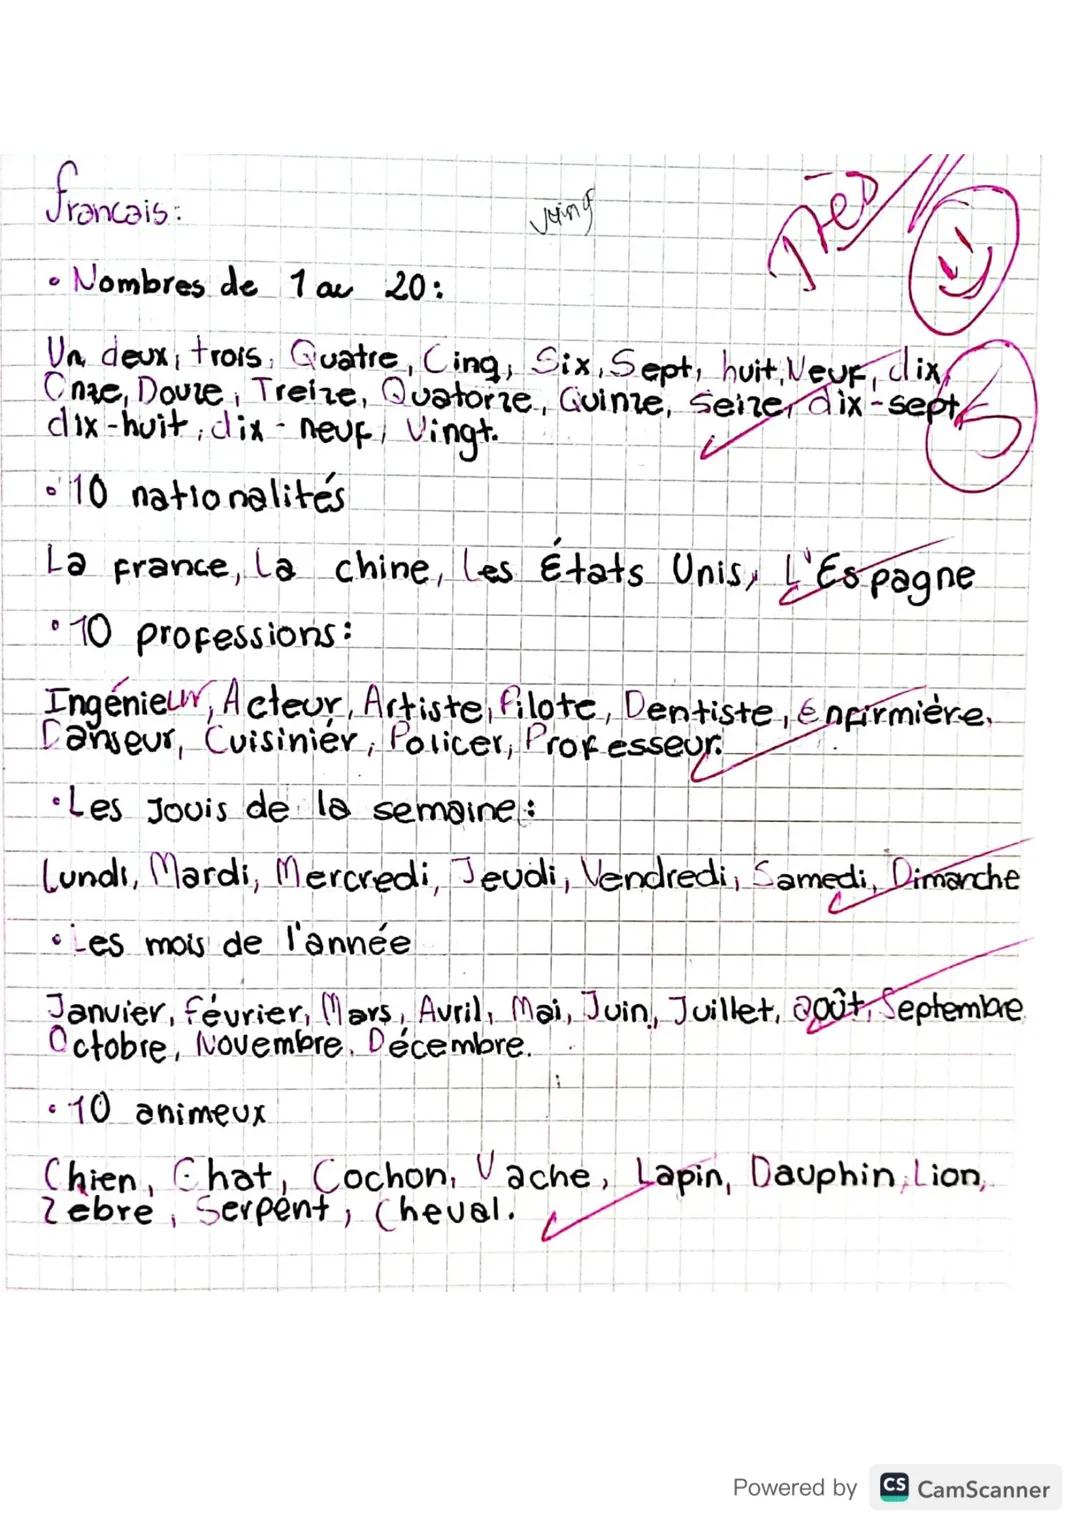 francais:
Nombres de 1 au 20:
Un deux, trois, Quatre, Cinq, Six, Sept, huit, Neuf, dix,
Onze, Douze, Treize, Quatorze, Quinze, seize, dix-sept,
dix-huit, dix-neuf, Vingt.
10 nationalités
La france, La chine, les États Unis, L'Espagne
10 professions:
Ingénieur, Acteur, Artiste, Pilote, Dentiste, enfirmière.
Danseur, Cuisinier, Policer, Professeur.
Les Jouis de la semaine:
Lundi, Mardi, Mercredi, Jeudi, Vendredi, Samedi, Dimarche
Les mois de l'année
Janvier, février, Mars, Avril, Mai, Juin, Juillet, août, Septembre
Octobre, Novembre, Décembre.
10 animeux
Chien, Chat, Cochon, Vache, Lapin, Dauphin, Lion,
Zebre, Serpent, Cheval.
Powered by CS CamScanner